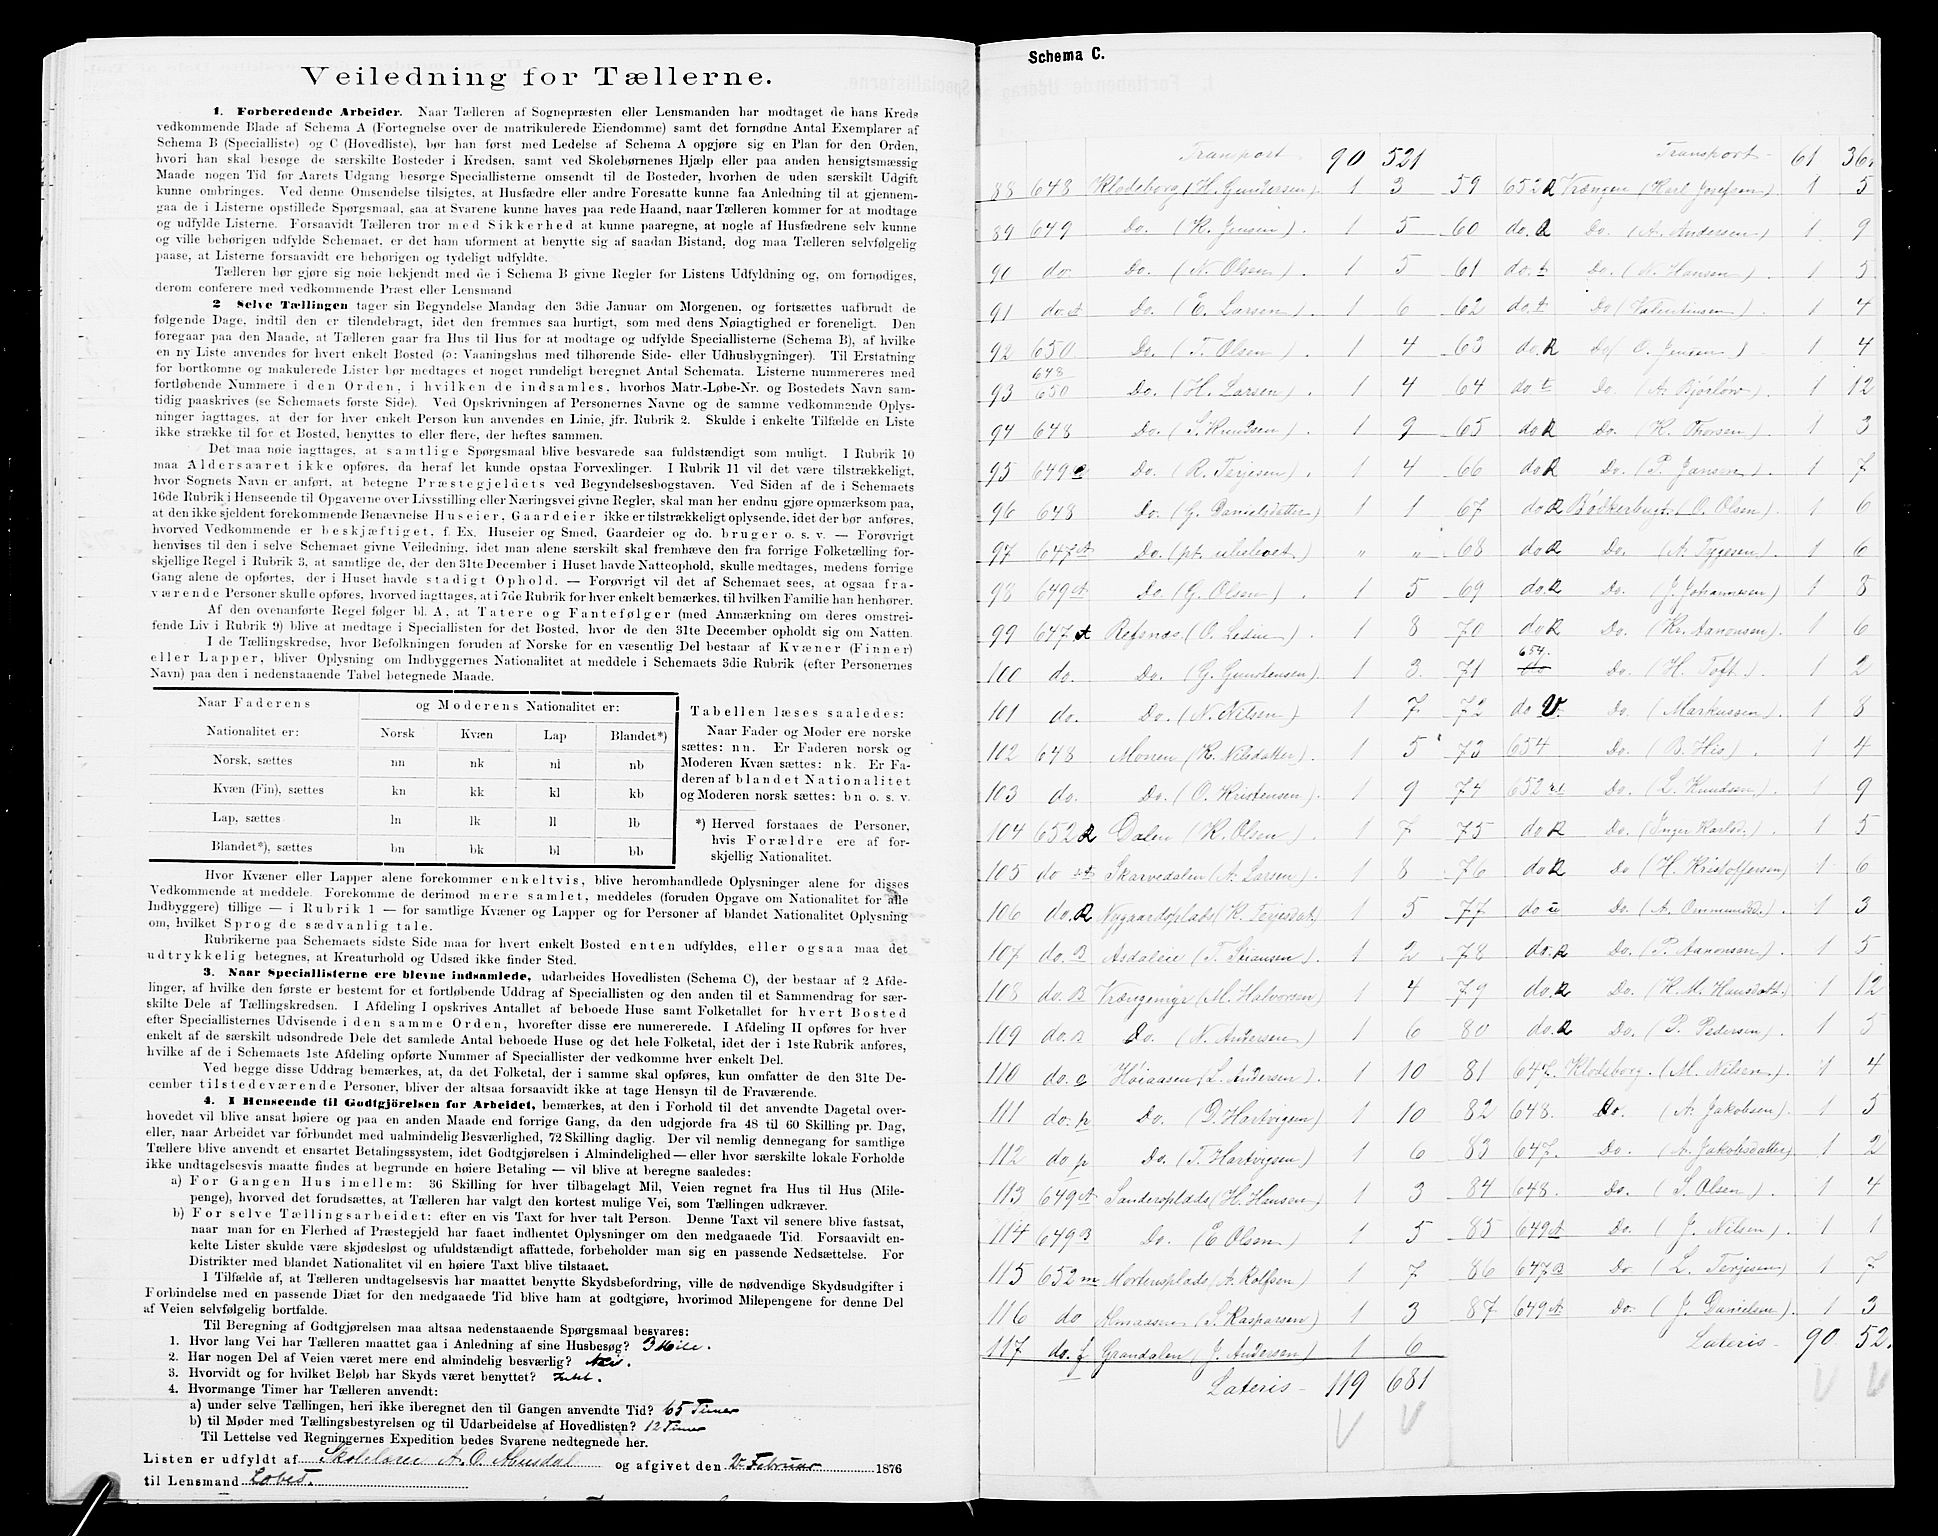 Veiledning for Tællerne.
1. Forberedende Arbeider. Naar Tælleren af Sognepræsten eller Lensmanden har modtaget de hans Kreds
vedkommende Blade af Schema A (Fortegnelse over de matrikulerede Eiendomme) samt det fornødne Antal Exemplarer af
Schema B (Specialliste) og C (Hovedliste), bør han først med Ledelse af Schema A opgjøre sig en Plan for den Orden,
hvori han skal besøge de særskilte Bosteder i Kredsen, samt ved Skolebørnenes Hjælp eller paa anden hensigtsmæssig
Maade nogen Tid før Aarets Udgang besørge Speciallisterne omsendt til de Bosteder, hvorhen de uden særskilt Udgift
kunne ombringes. Ved denne Omsendelse tilsigtes, at Husfædre eller andre Foresatte kunne faa Anledning til at gjennem-
gaa de i Listerne opstillede Spørgsmaal, saa at Svarene kunne haves paa rede Haand, naar Tælleren kommer for at modtage
og udfylde Listerne. Forsaavidt Tælleren tror med Sikkerhed at kunne paaregne, at nogle af Husfædrene selv kunne
og ville behørigen udfylde Schemaet, er det ham uforment at benytte sig af saadan Bistand, dog maa Tælleren selvfølgelig
paase, at Listerne forsaavidt ere behørigen og tydeligt udfyldte.
Tælleren bør gjøre sig nøie bekjendt med de i Schema B givne Regler for Listens Udfyldning og, om fornødiges,
derom conferere med vedkommende Præst eller Lensmand
2 Selve Tællingen tager sin Begyndelse Mandag den 3die Januar om Morgenen, og fortsættes uafbrudt de
følgende Dage, indtil den er tilendebragt, idet den fremmes saa hurtigt, som med dens Nøiagtighed er foreneligt. Den
foregaar paa den Maade, at Tælleren gaar fra Hus til Hus for at modtage og udfylde Speciallisterne (Schema B), af hvilke
en ny Liste anvendes for hvert enkelt Bosted (ɔ: Vaaningshus med tilhørende Side- eller Udhusbygninger). Til Erstatning
for bortkomne og makulerede Lister bør medtages et noget rundeligt beregnet Antal Schemata. Listerne nummereres med
fortløbende Nummere i den Orden, i hvilken de indsamles, hvorhos Matr.-Løbe-Nr. og Bostedets Navn sam-
tidig paaskrives (se Schemaets første Side). Ved Opskrivningen af Personernes Navne og de samme vedkommende Oplys-
ninger iagttages, at der for hver enkelt Person kun anvendes en Linie, jfr. Rubrik 2. Skulde i enkelte Tilfælde en Liste
ikke strække til for et Bosted, benyttes to eller flere, der heftes sammen.
Det maa nøie iagttages, at samtlige Spørgsmaal blive besvarede saa fuldstændigt som muligt. I Rubrik 10
maa Aldersaaret ikke opføres, da heraf let kunde opstaa Forvexlinger. I Rubrik 11 vil det være tilstrækkeligt,
hvor Sognets Navn er anført, at betegne Præstegjeldets ved Begyndelsesbogstaven. Ved Siden af de i Schemaets
16de Rubrik i Henseende til Opgaverne over Livsstilling eller Næringsvei givne Regler, skal man her endnu gjøre opmærksom paa,
at den ikke sjeldent forekommende Benævnelse Huseier, Gaardeier ikke er tilstrækkeligt oplysende, idet der bør anføres,
hvorved Vedkommende er beskjæftiget, f. Ex. Huseier og Smed, Gaardeier og do. bruger o. s. v. — Forøvrigt
henvises til den i selve Schemaet givne Veiledning, idet man alene særskilt skal fremhæve den fra forrige Folketælling for-
skjellige Regel i Rubrik 3, at samtlige de, der den 31te December i Huset havde Natteophold, skulle medtages, medens forrige
Gang alene de opførtes, der i Huset havde stadigt Ophold. — Forøvrigt vil det af Schemaet sees, at ogsaa fra-
værende Personer skulle opføres, hvorved iagttages, at i 7de Rubrik for hver enkelt bemærkes, til hvilken Familie han henhører.
Af den ovenanførte Regel følger bl. A, at Tatere og Fantefølger (med Anmærkning om deres omstrei-
fende Liv i Rubrik 9) blive at medtage i Speciallisten for det Bosted, hvor de den 31te December opholdt sig om Natten.
I de Tællingskredse, hvor Befolkningen foruden af Norske for en væsentlig Del bestaar af Kvæner (Finner)
eller Lapper, bliver Oplysning om Indbyggernes Nationalitet at meddele i Schemaets 3die Rubrik (efter Personernes
Navn) paa den i nedenstaaende Tabel betegnede Maade.
Naar Faderens | og Moderens Nationalitet er:
Nationalitet er: | Norsk | Kvæn | Lap | Blandet*)
Norsk, sættes | nn | nk | nl | nb
Kvæn (Fin), sættes | kn | kk | kl | kb
Lap, sættes | ln | lk | ll | lb
Blandet*), sættes | bn | bk | bl | bb
Tabellen læses saaledes:
Naar Fader og Moder ere norske
sættes: nn. Er Faderen norsk og
Moderen Kvæn sættes: nk. Er Fa-
deren af blandet Nationalitet
og Moderen norsk sættes: bn o. s. v.
*) Herved forstaaes de Personer,
hvis Forældre ere af for-
skjellig Nationalitet.
Hvor Kvæner eller Lapper alene forekommer enkeltvis, blive heromhandlede Oplysninger alene for disses
Vedkommende at meddele. Forekomme de derimod mere samlet, meddeles (foruden Opgave om Nationalitet for alle
Indbyggere) tillige — i Rubrik 1 — for samtlige Kvæner og Lapper og for Personer af blandet Nationalitet Oplysning
om, hvilket Sprog de sædvanlig tale.
Rubrikerne paa Schemaets sidste Side maa for hvert enkelt Bosted enten udfyldes, eller ogsaa maa det
udtrykkelig betegnes, at Kreaturhold og Udsæd ikke finder Sted.
3. Naar Speciallisterne ere blevne indsamlede, udarbeides Hovedlisten (Schema C), der bestaar af 2 Afde-
linger, af hvilke den første er bestemt for et fortløbende Uddrag af Speciallisten og den anden til et Sammendrag for sær-
skilte Dele af Tællingskredsen. I Afdeling I opskrives Antallet af beboede Huse samt Folketallet for hvert Bosted
efter Speciallisternes Udvisende i den samme Orden, hvorefter disse ere numererede. I Afdeling II opføres for hver
enkelt af de særskilt udsondrede Dele det samlede Antal beboede Huse og det hele Folketal, idet der i 1ste Rubrik anføres,
hvilke af de i Schemaets 1ste Afdeling opførte Nummer af Speciallister der vedkomme hver enkelt Del.
Ved begge disse Uddrag bemærkes, at, da det Folketal, der i samme skal opføres, kun omfatter de den 31te De-
cember tilstedeværende Personer, bliver der altsaa forsaavidt ikke at tage Hensyn til de Fraværende.
4. I Henseende til Godtgjörelsen for Arbeidet, bemærkes, at den i Forhold til det anvendte Dagetal over-
hovedet vil blive ansat høiere og paa en anden Maade end forrige Gang, da den udgjorde fra 48 til 60 Skilling pr. Dag,
eller, naar Arbeidet var forbundet med ualmindelig Besværlighed, 72 Skilling daglig. Der vil nemlig dennegang for samtlige
Tællere blive anvendt et ensartet Betalingssystem, idet Godtgjörelsen i Almindelighed — eller hvor særskilte lokale Forholde
ikke undtagelsesvis maatte findes at begrunde en høiere Betaling — vil blive at beregne saaledes:
a) For Gangen Hus imellem: 36 Skilling for hver tilbagelagt Mil, Veien regnet fra Hus til Hus (Mile-
penge), hvorved det forudsættes, at Tælleren har valgt den kortest mulige Vei, som Tællingen udkræver.
b) For selve Tællingsarbeidet: efter en vis Taxt for hver talt Person. Denne Taxt vil senere blive fastsat,
naar man for en Flerhed af Præstegjeld har faaet indhentet Oplysninger om den medgaaede Tid. Forsaavidt en-
kelte Lister skulde være skjødesløst og ufuldstændigt affattede, forbeholder man sig en passende Nedsættelse. For
Distrikter med blandet Nationalitet vil en høiere Taxt blive tilstaaet.
I Tilfælde af, at Tælleren undtagelsesvis har maattet benytte Skydsbefordring, ville de nødvendige Skydsudgifter i
Forbindelse med en passende Diæt for den medgaaede Tid blive ham at godtgjøre, hvorimod Milepengene for denne Del
af Veien selvfølgelig bortfalde.
Til Beregning af Godtgjørelsen maa altsaa nedenstaaende Spørgsmaal besvares:
1. Hvor lang Vei har Tælleren maattet gaa i Anledning af sine Husbesøg? 3 Mile.
2. Har nogen Del af Veien været mere end almindelig besværlig? Nei.
3. Hvorvidt og for hvilket Beløb har Skyds været benyttet? Intet.
4. Hvormange Timer har Tælleren anvendt:
a) under selve Tællingen, heri ikke iberegnet den til Gangen anvendte Tid? 65 Timer
b) til Møder med Tællingsbestyrelsen og til Udarbeidelse af Hovedlisten? 12 Timer
Til Lettelse ved Regningernes Expedition bedes Svarene nedtegnede her.
Listen er udfyldt af Skolelærer A. O. og afgivet den Februar 1876
til Lensmand
Schema C.
Transport 90 521
88 648 Klodeborg (H. Gundersen). 1 3
89 649 Do. (K. Jensen). 1 5
90 do. Do. (N. Olsen). 1 5
91 do. A Do. (E. Larsen). 1 6
92 650 Do. (T. Olsen) 1 4
93 648/650 Do. (H. Larsen) 1 4
94 648 Do. (S. Knudsen) 1 9
95 649 Do. (R. Terjesen) 1 4
96 648 Do. (G. Danielsdatter) 1 1
97 647A Do. (pt. ubeboet) " "
98 649A Do. (G. Olsen). 1 5
99 647A Refsnæs (O. Ledin). 1 8
100 do. Do. (G. Gunstensen) 1 3
101 do. Do. (N. Nilsen) 1 7
102 648 Monen (K. Nilsdatter). 1 5
103 do. Do. (O. Kristensen). 1 9
104 652R Dalen (K. Olsen) 1 7
105 do Skarvedalen (A. Larsen). 1 8
106 do. R Nygaardsplads (K. Terjesdat.) 1 5
107 do. B Asdaleie (T. ) 1 2
108 do. B Vrængemyr (M. Halvorsen) 1 4
109 do. B Do. (N. Andersen) 1 6
110 do. Høiaasen (L. Andersen). 1 10
111 do. p Do. (D. Hartvigsen) 1 10
112 do p Do. (T. Hartvigsen) 1 6
113 649A Sandersplads (H. Hansen) 1 3
114 649B Do. (E Olsen) 1 5
115 652m Mortensplads (A. Rolfsen) 1 7
116 do (S. Kaspersen) 1 3
117 do. f Grandalen (J. Andersen) 1 6
Lateris 119 681
Transport 61 36
59 652R Vrængen (Karl Josefsen) 1 5
60 do. R Do. (A. Andersen) 1 9
61 do. t Do. (N. Hansen). 1 5
62 do. t Do (Valentinsen) 1 4
63 do. R Do (O. Jensen) 1 4
64 do. t Do. (A. Bjørløw) 1 12
65 do R Do. (K. Thorsen). 1 3
66 do R Do. (P. Jansen) 1 7
67 do R Bøtkerbugt. (O. Olsen) 1 6
68 do R Do. (A. Tygesen) 1 6
69 do. R Do. (J. Johannesen) 1 8
70 do R Do. (Kr. Aanonsen) 1 6
71 654. do Do. (H. Toft.) 1 2
72 do V. Do. (Markussen) 1 8
73 654 Do. (B. His). 1 4
74 652 Do. (L. Knudsen) 1 9
75 do R Do. (Inger Karlsd.) 1 5
76 do R Do (H. Kristoffersen) 1 6
77 do u Do. (A. Ommundsd.) 1 3
78 do. R Do. (P. Aanonsen) 1 5
79 do. R Do. (K. M. Hansdatt.) 1 12
80 do. R Do. (P. Pedersen) 1 5
81 647. Klodeborg. (M. Nilsen) 1 4
82 648. Do. (A. Jakobsen) 1 3
83 647. Do. (A. Jakobsdatter) 1 2
84 648. Do. (S. Olsen) 1 4
85 649A Do. (J. Nilsen) 1 1
86 647B Do. (L. Terjesen) 1 7
87 649A Do. (J. Danielsen) 1 3
Lateris 90 52